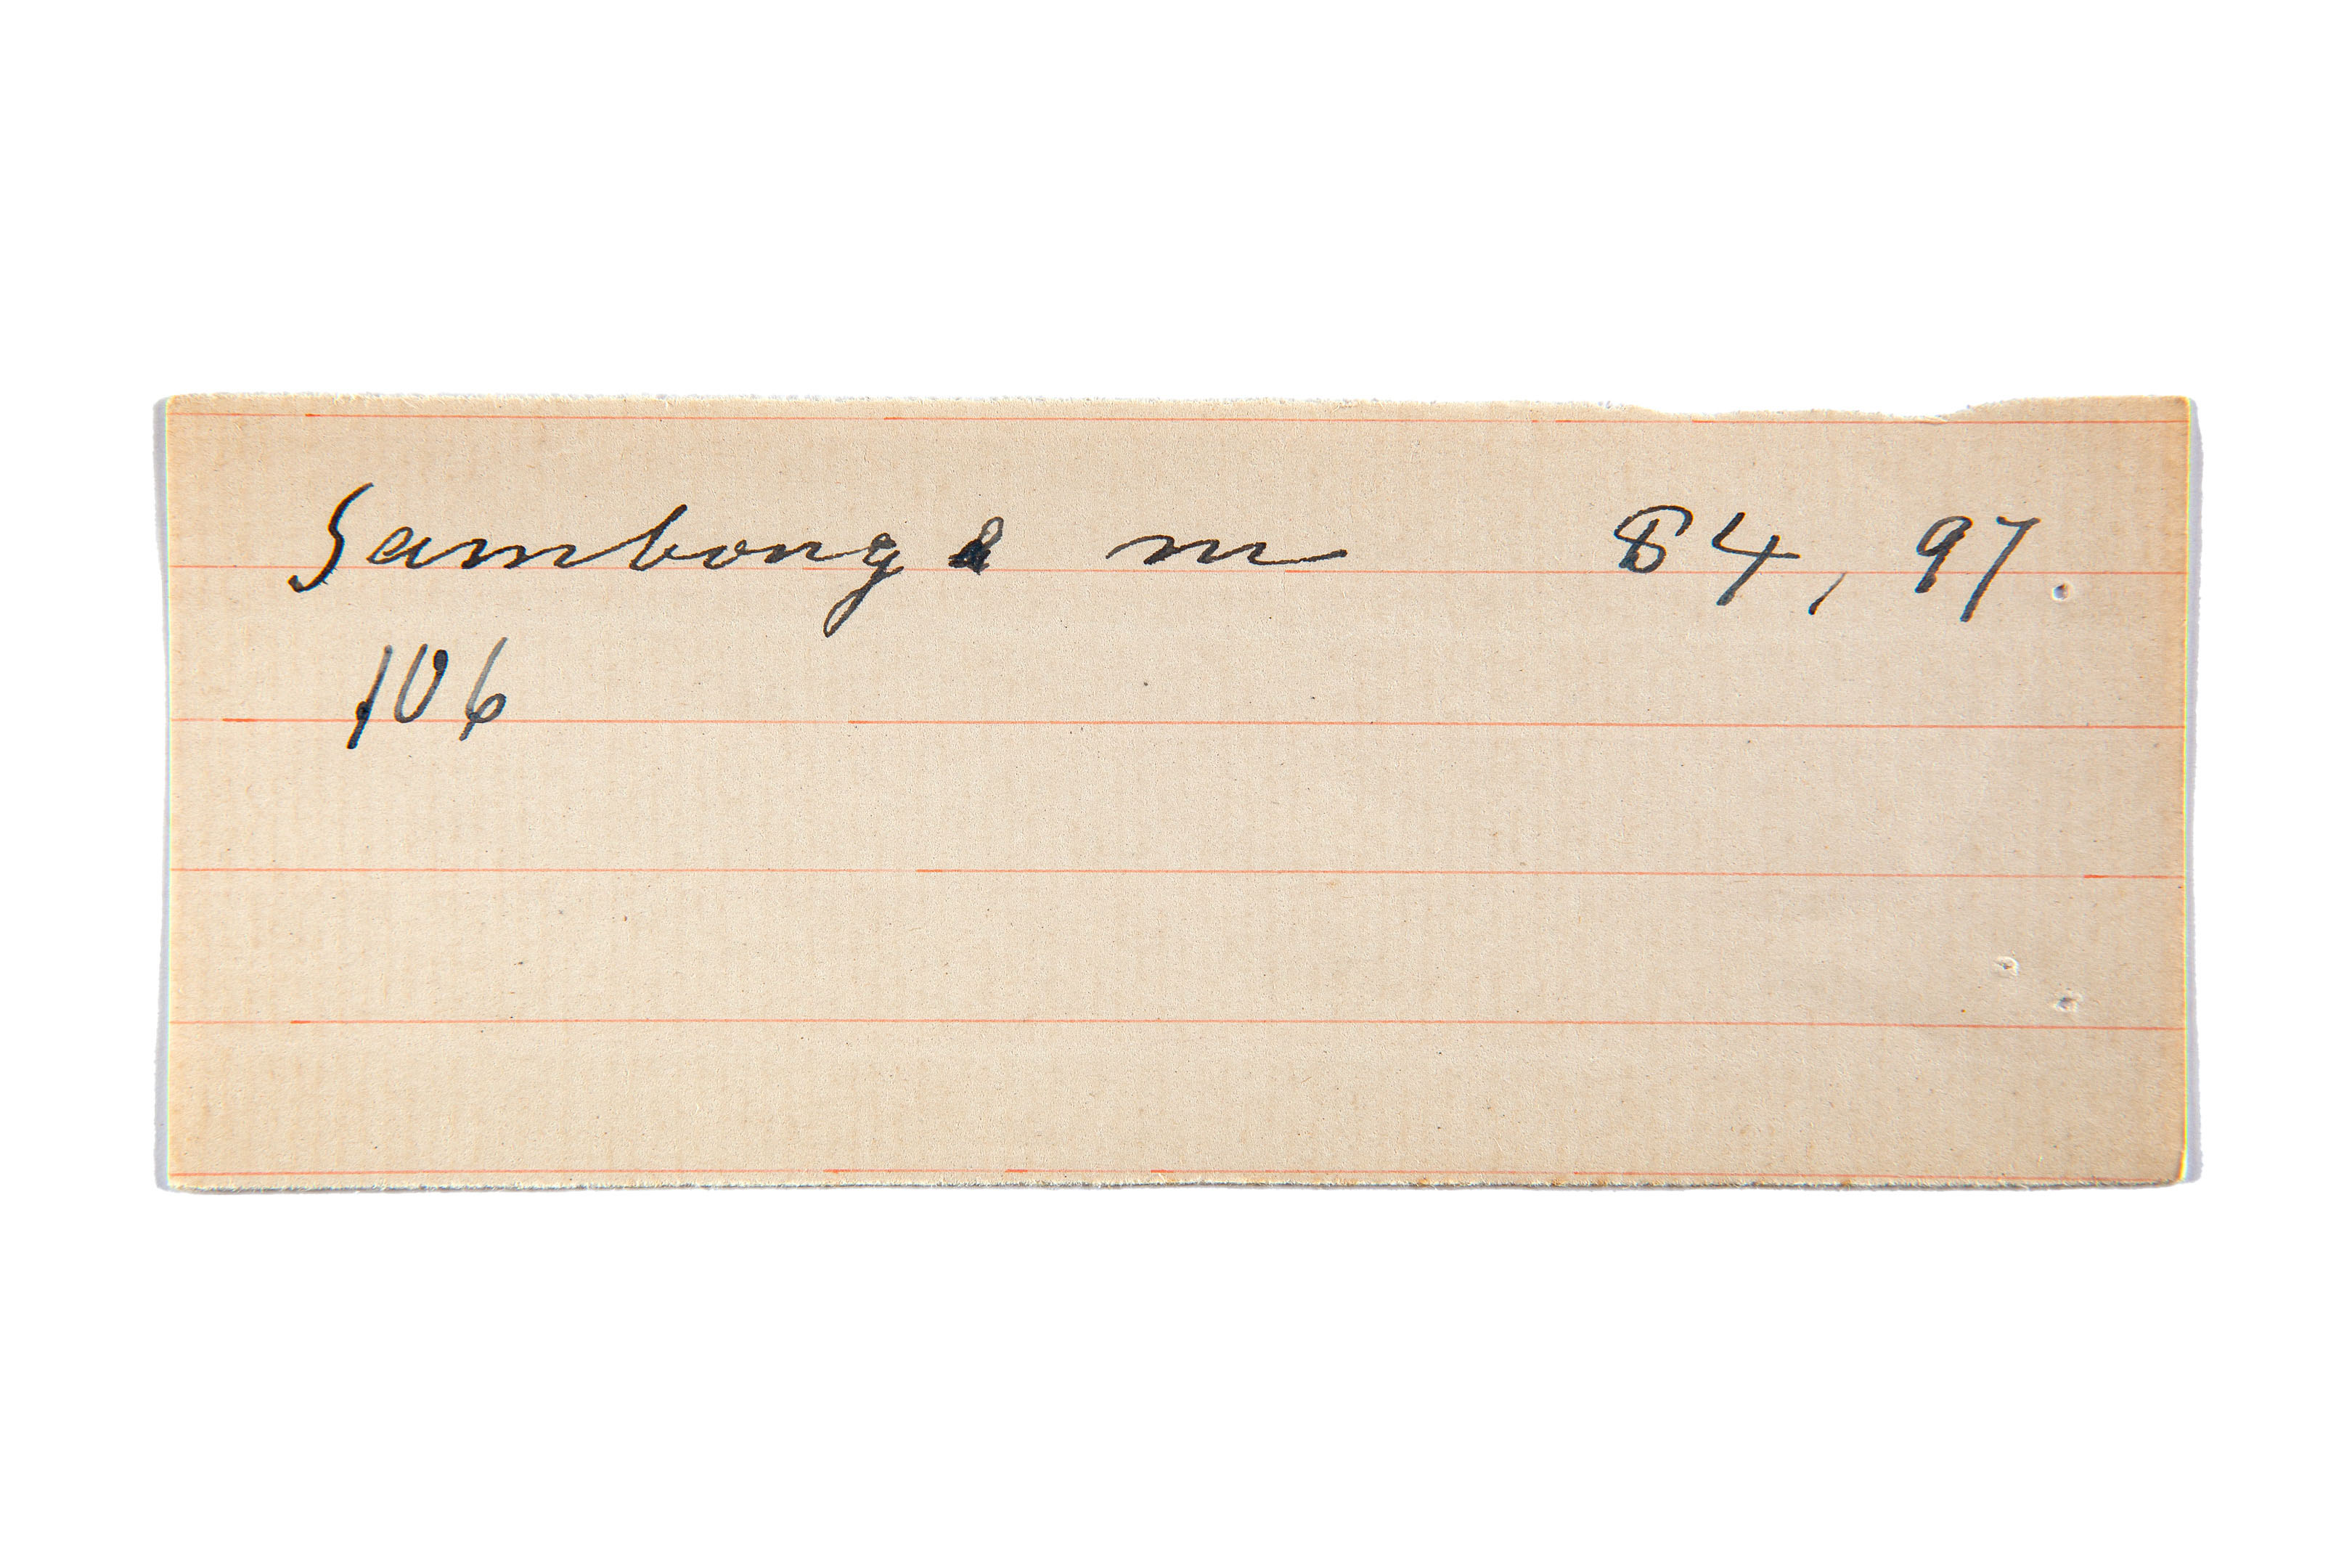 Sambong m 84, 97.
106